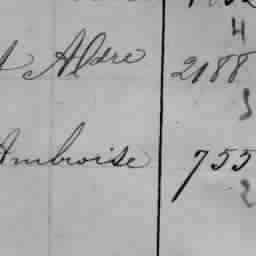 4
Aldre 2188
3
Ambroise 755
2